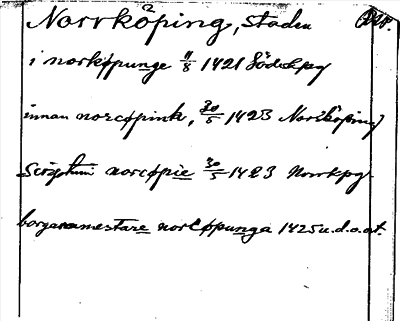 Norrköping, staden DSP.
i norkøpunge 11/8 1421 Södckpg
innan norcøpink, 30/5 1423 Norrköping
Scriptum norcøpie 30/5 1423 Norrkpg.
borgaramestare norcøpunga 1425 u.d.o.ot.